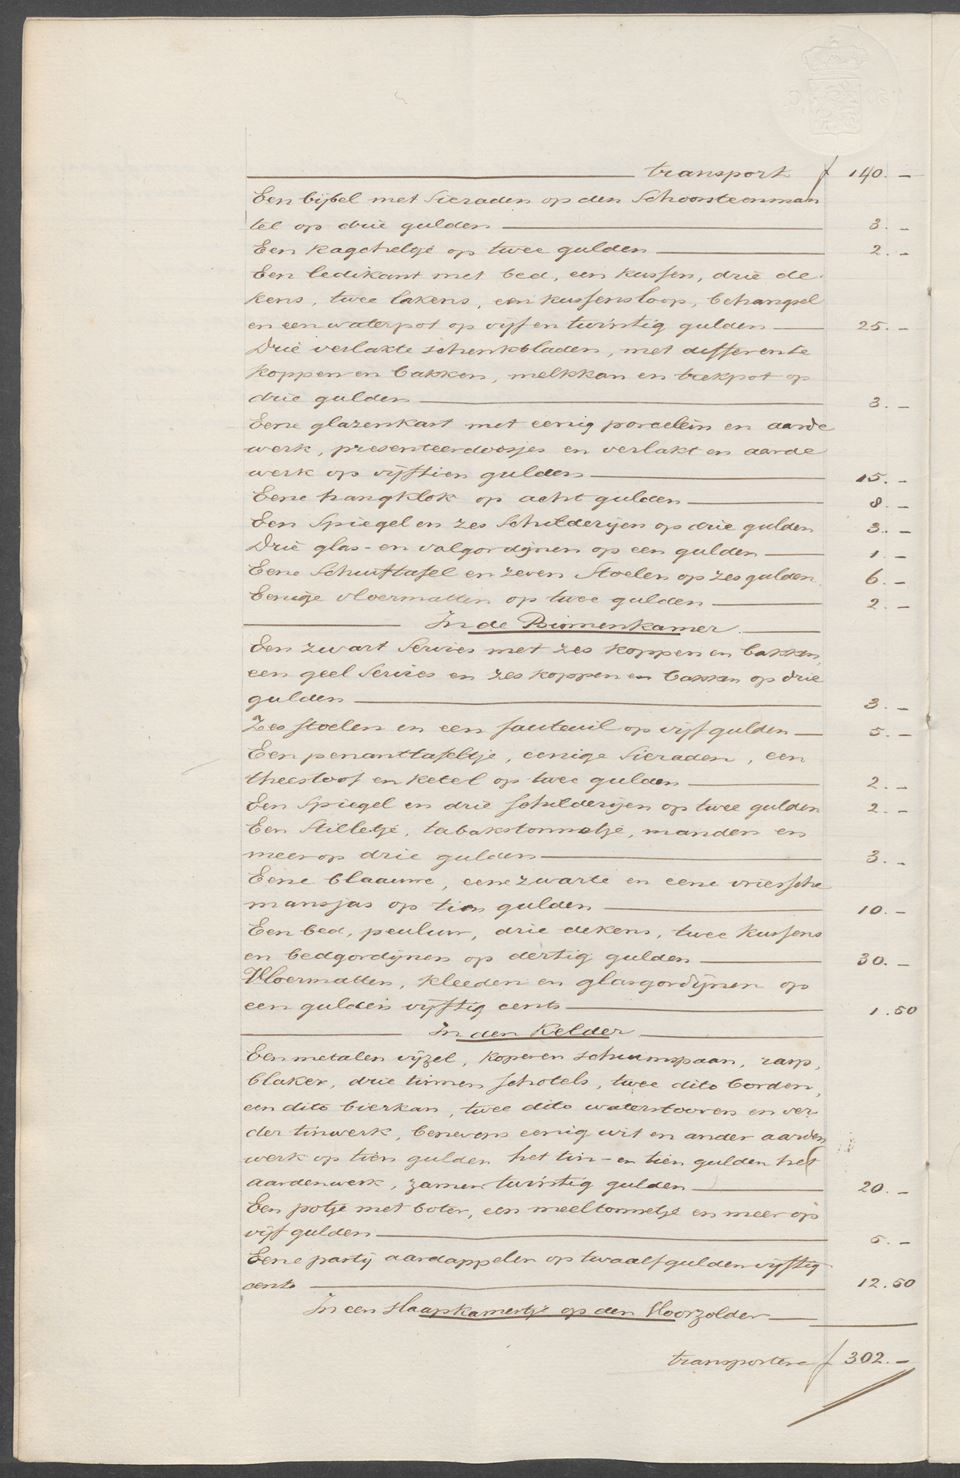 transport f 140.-
Een bijbel met Sieraden op den Schoorsteenman
tel op drie gulden 3.-
Een kagcheltje op twee gulden 2.-
Een ledikant met bed, een kussen, drie de
kens, twee lakens, een kussensloop, behangsel
en een waterpot op vijf en twintig gulden 25.-
Drie verlakte schenkbladen, met differente
koppen en bakken, melkkan en trekpot op
drie gulden 3.-
Eene glazenkast met eenig porcelein en aarde
werk, presenteerdoosjes en verlakt en aarde
werk op vijftien gulden 15.-
Eene hangklok op acht gulden 8.-
Een Spiegel en zes Schilderijen op drie gulden 3.-
Drie glas- en valgordijnen op een gulden 1.-
Eene Schuiftafel en zeven Stoelen op zes gulden 6.-
Eenige vloermatten op twee gulden 2.-
In de Binnenkamer
Een zwart Servies met zes koppen en bakken,
een geel Servies en zes koppen en bakken op drie
gulden 3.-
Zes stoelen en een fauteuil op vijf gulden 5.-
Een penanttafeltje, eenige Sieraden, een
theestoof en ketel op twee gulden 2.-
Een Spiegel en drie schilderijen op twee gulden 2.-
Een Stilletje, tabakstonnetje, manden en
meer op drie gulden 3.-
Eene blaauwe, eene zwarte en eene vriessche
mansjas op tien gulden 10.-
Een bed, peuluw, drie dekens, twee kussens
en bedgordijnen op dertig gulden 30.-
Vloermatten, kleeden en glasgordijnen op
een gulden vijftig cents 1.50
In den Kelder
Een metalen vijzel, koperen schuimspaan, rasp,
blaker, drie tinnen schotels, twee dito borden,
een dito bierkan, twee dito waterstooven en ver
der tinwerk, benevens eenig wit en ander aarden
werk op tien gulden het tin- en tien gulden het
aardenwerk, zamen twintig gulden 20.-
Een potje met boter, een meeltonnetje en meer op
vijf gulden 5.-
Eene partij aardappelen op twaalf gulden vijftig
cents 12.50
In een slaapkamertje op den Voorzolder
transportere f 302.-